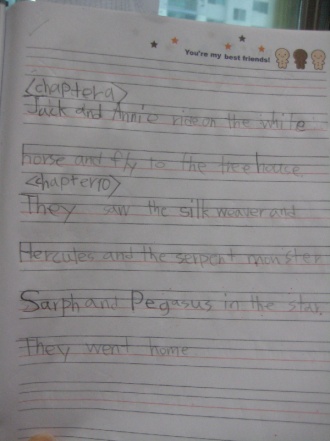 You're my best friends!
<chapter9>
Jack and Annie ride on the white
horse and fly to the tree house.
<chapter10>
They saw the silk weaver and
Hercules and the serpent monster
Sarph and Pegasus in the star.
They went home